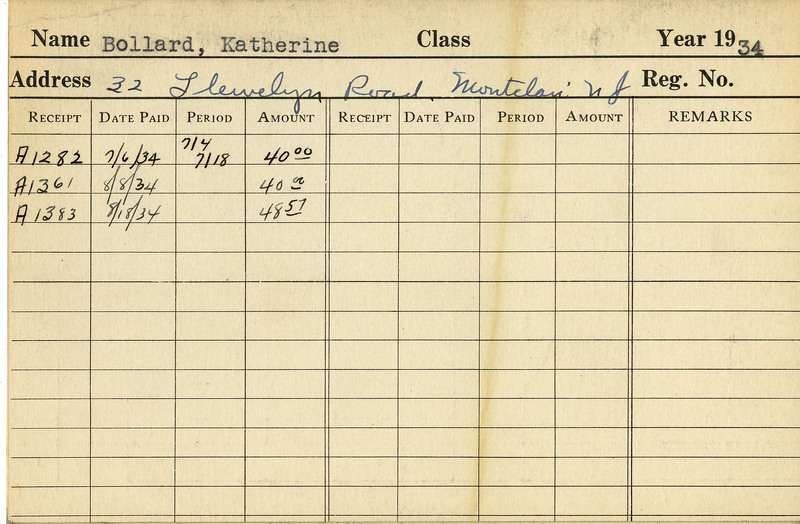 Name Bollard, Katherine Class Year 1934
Address 32 Llewelyn Road. Montclair NJ Reg. No.
RECEIPT DATE PAID PERIOD AMOUNT RECEIPT DATE PAID PERIOD AMOUNT REMARKS
7/4
A1282 7/6/34 7/18 40 00
A1361 8/8/34 40 00
A1383 8/18/34 48 57